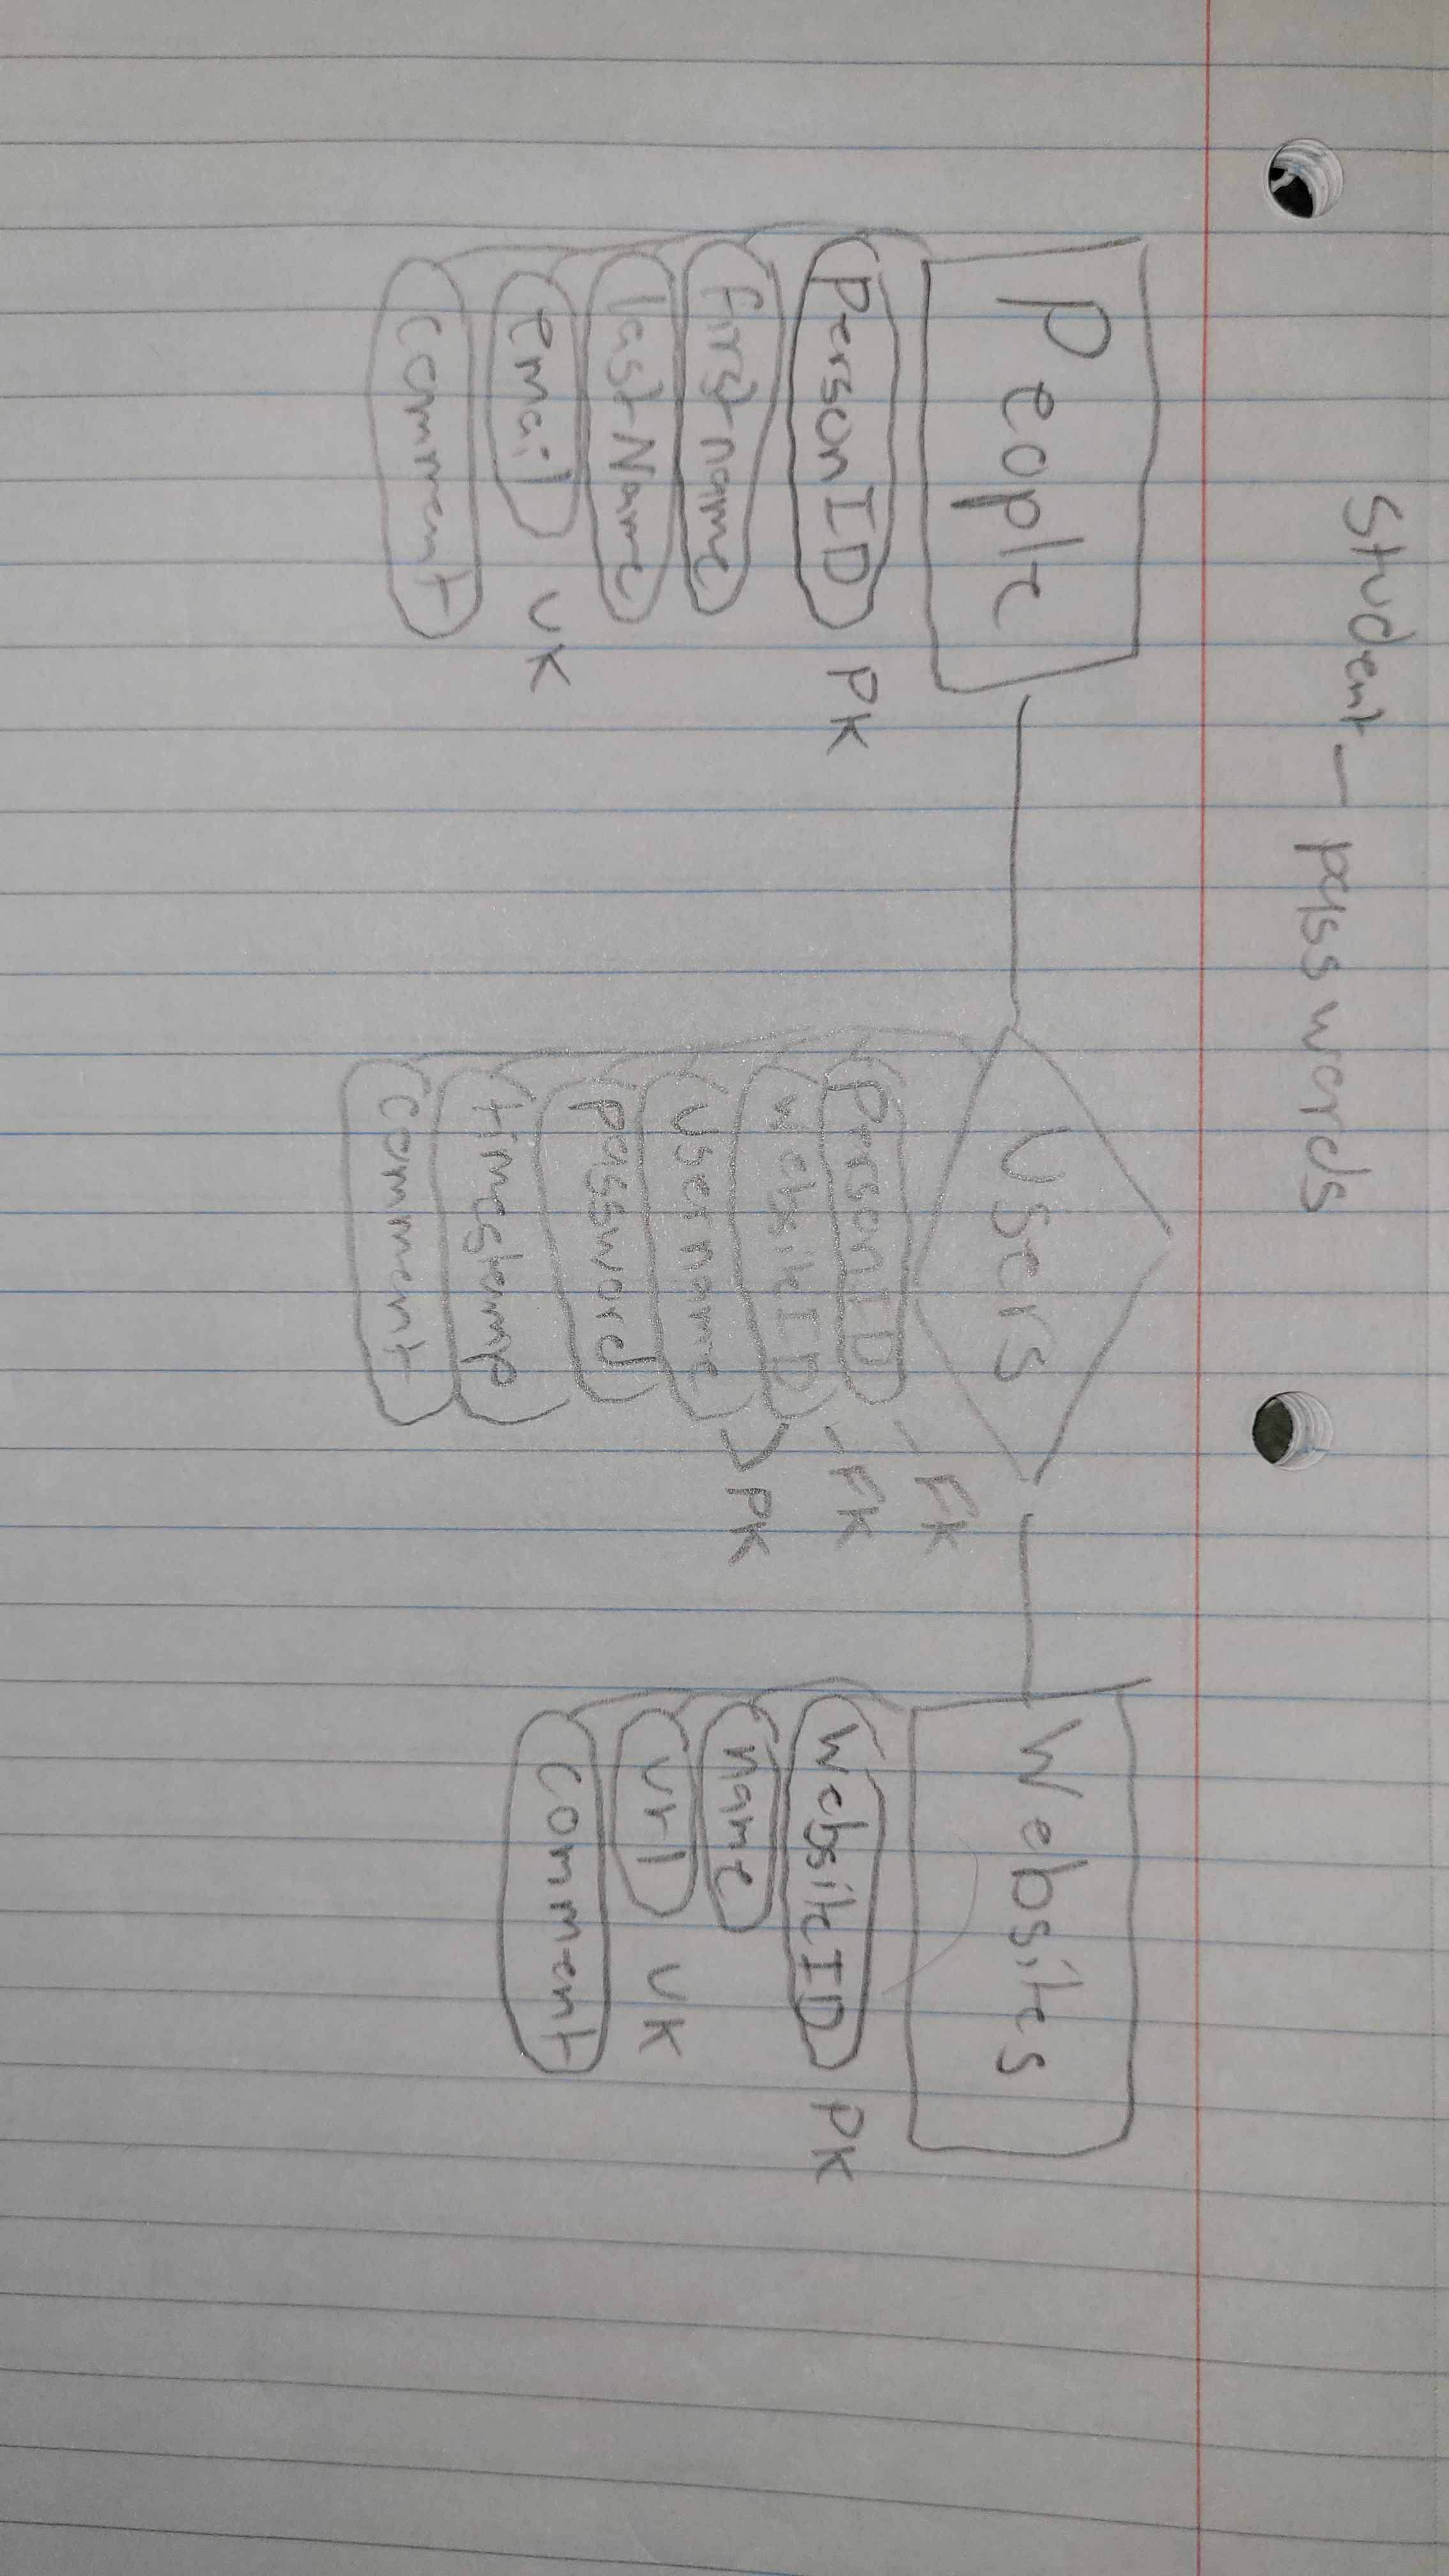 Student — passwords
People
PersonID PK
first name
last Name
email UK
comment
Users
PersonID - FK
WebsiteID - FK
Username > PK
password
timestamp
comment
Websites
WebsiteID PK
name
Url UK
comment